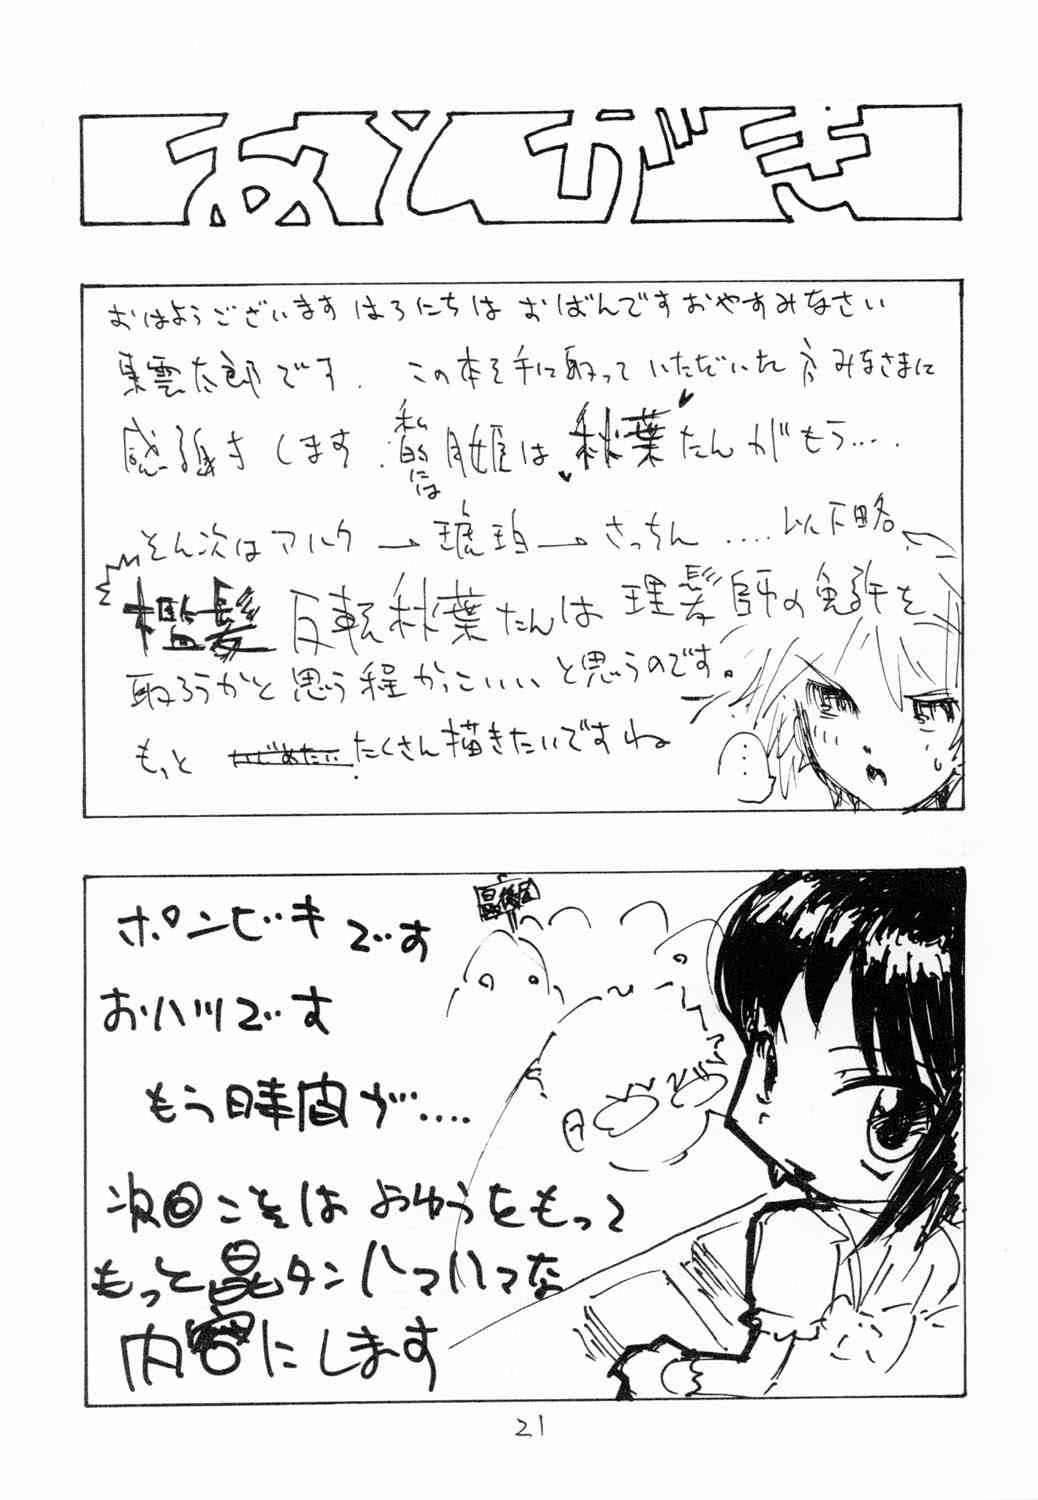 あとがき
おはようございますはろにちは おばんですおやすみなさい
東雲太郎です. この本を手に取っていただいた方みなさまに
感謝します. 私的には月姫は秋葉たんがもう....
そん次はアルク→琥珀→さっちん ....以下略
檻髪 反転秋葉たんは理髪師の免許を
取ろうかと思う程かっこいいと思うのです。
もっと いじめたい たくさん描きたいですね
…
最後尾
ポンビキです
おハツです
もう時間が....
次回こそはよゆうをもって
もっと晶タンハァハァな
内容にします
21